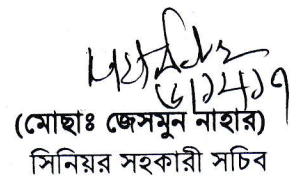 ৬/১২/১৭
(মোছাঃ জেসমুন নাহার)
সিনিয়র সহকারী সচিব